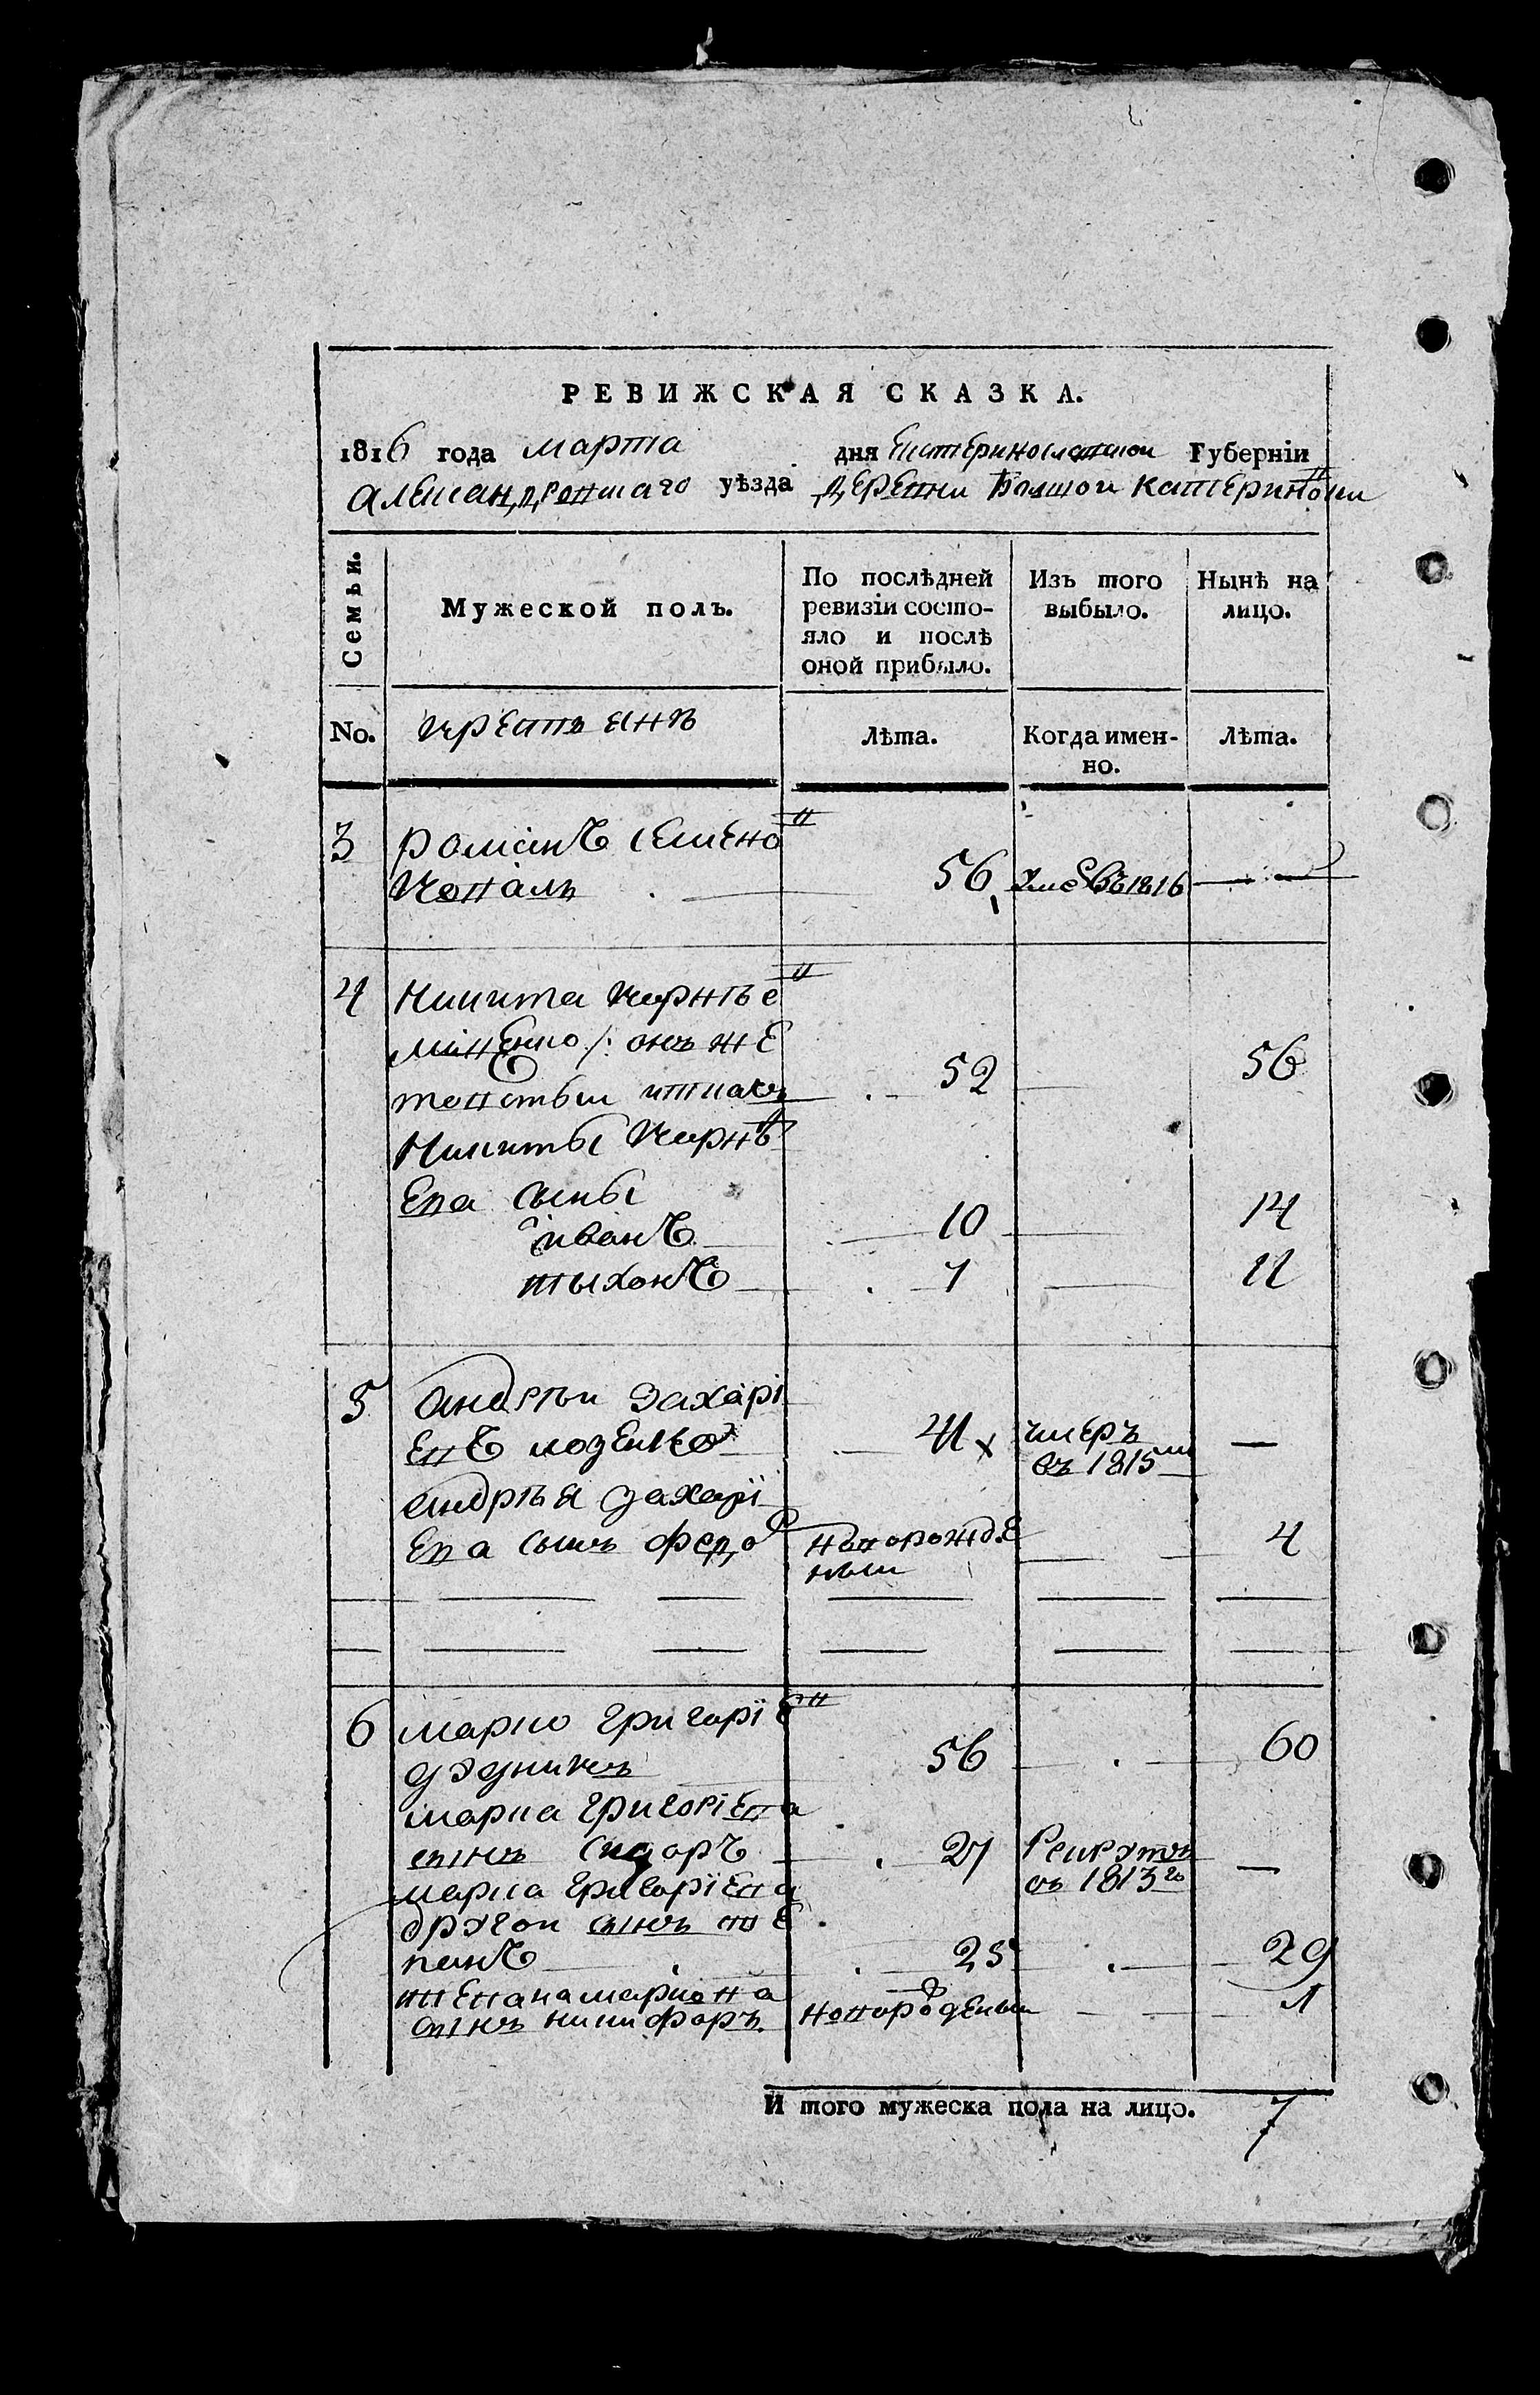 РЕВИЖСКАЯ СКАЗКА.
1816 года марта дня Екатеринославской Губерніи
Александровскаго уѣзда деревни Болшой Катериновки
Семьи.
Мужеской полъ.
По послѣдней ревизіи состо-
яло и послѣ
оной прибыло.
Изъ того
выбыло.
Нынѣ на
лицо.
No.
крестьянъ
Лѣта.
Когда имен-
но.
Лѣта.
3 Романъ Семенов
Коваль 56 Умеръ въ 1816 —
4 Никита Корнѣев
онъ же
52 56
Никиты Корнѣ
ева сыны
иванъ 10 14
тыхонъ 7 11
5 андрѣй Захарі
евъ 41 умеръ
въ 1815 —
андрѣя Захарі
ева сынъ федор новорожде
ный 4
6 марко григоріев
56 60
марка григоріева
сынъ Сидоръ 27 Рекрутъ
въ 1813го —
марка григоріева
другои сынъ сте
панъ 25 29
степана маркова
сынъ никифоръ новорожденый 1
И того мужеска пола на лицо. 7